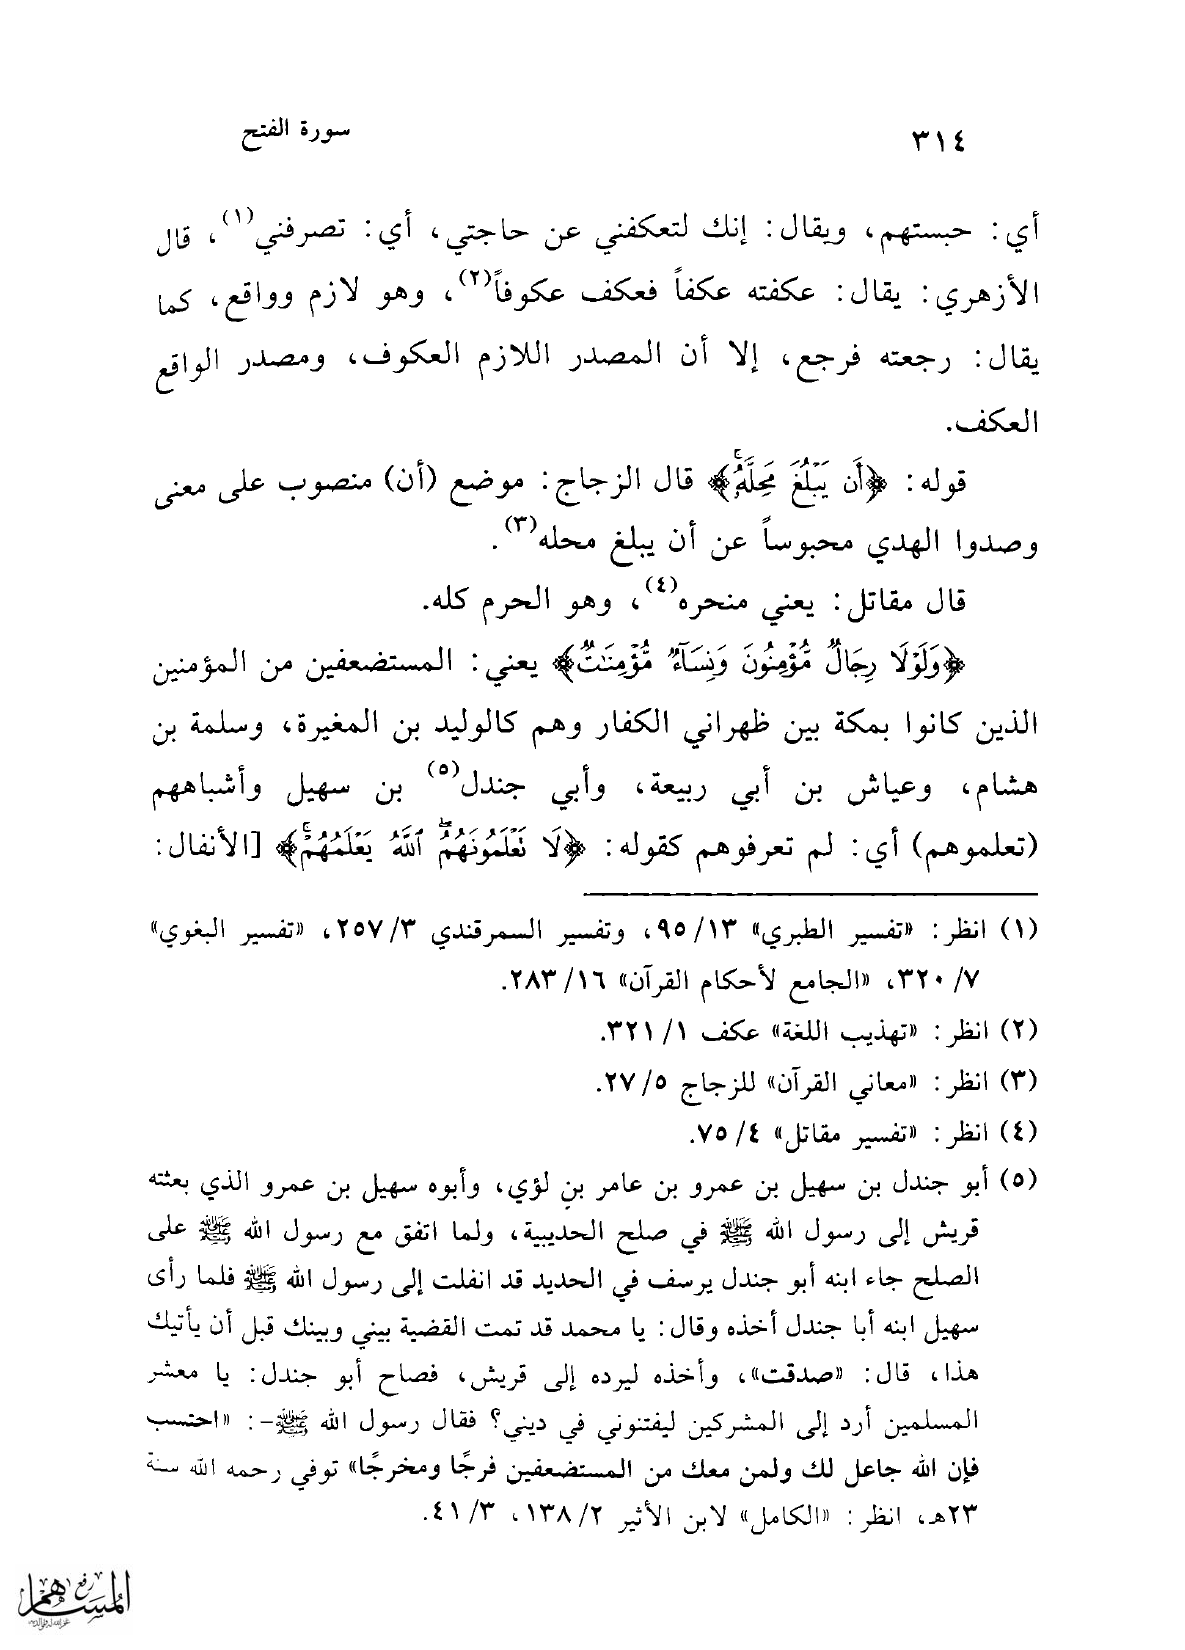 ٣١٤
سورة الفتح
أي: حبستهم، ويقال: إنك لتعكفني عن حاجتي، أي: تصرفني(١)، قال
الأزهري: يقال: عكفته عكفاً فعكف عكوفاً(٢)، وهو لازم وواقع، كما
يقال: رجعته فرجع، إلا أن المصدر اللازم العكوف، ومصدر الواقع
العكف.
قوله: ﴿أَن يَبْلُغَ مَحِلَّهُۥۚ﴾ قال الزجاج: موضع (أن) منصوب على معنى
وصدوا الهدي محبوساً عن أن يبلغ محله(٣).
قال مقاتل: يعني منحره(٤)، وهو الحرم كله.
﴿وَلَوْلَا رِجَالٌ مُّؤْمِنُونَ وَنِسَآءٌ مُّؤْمِنَٰتٌ﴾ يعني: المستضعفين من المؤمنين
الذين كانوا بمكة بين ظهراني الكفار وهم كالوليد بن المغيرة، وسلمة بن
هشام، وعياش بن أبي ربيعة، وأبي جندل(٥) بن سهيل وأشباههم
(تعلموهم) أي: لم تعرفوهم كقوله: ﴿لَا تَعْلَمُونَهُمُ ۖ ٱللَّهُ يَعْلَمُهُمْ ۚ﴾ [الأنفال:
(١) انظر: «تفسير الطبري» ١٣/ ٩٥، وتفسير السمرقندي ٣/ ٢٥٧، «تفسير البغوي»
٧/ ٣٢٠، «الجامع لأحكام القرآن» ١٦/ ٢٨٣.
(٢) انظر: «تهذيب اللغة» عكف ١/ ٣٢١.
(٣) انظر: «معاني القرآن» للزجاج ٥/ ٢٧.
(٤) انظر: «تفسير مقاتل» ٤/ ٧٥.
(٥) أبو جندل بن سهيل بن عمرو بن عامر بن لؤي، وأبوه سهيل بن عمرو الذي بعثته
قريش إلى رسول الله ﷺ في صلح الحديبية، ولما اتفق مع رسول الله ﷺ على
الصلح جاء ابنه أبو جندل يرسف في الحديد قد انفلت إلى رسول الله ﷺ فلما رأى
سهيل ابنه أبا جندل أخذه وقال: يا محمد قد تمت القضية بيني وبينك قبل أن يأتيك
هذا، قال: «صدقت»، وأخذه ليرده إلى قريش، فصاح أبو جندل: يا معشر
المسلمين أرد إلى المشركين ليفتنوني في ديني؟ فقال رسول الله ﷺ-: «احتسب
فإن الله جاعل لك ولمن معك من المستضعفين فرجًا ومخرجًا» توفي رحمه الله سنة
٢٣هـ، انظر: «الكامل» لابن الأثير ٢/ ١٣٨، ٣/ ٤١.
رفع
المساهم